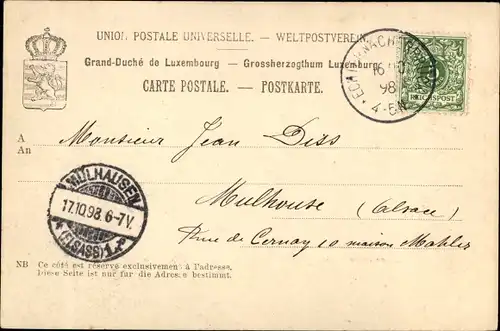 UNION POSTALE UNIVERSELLE. — WELTPOSTVEREIN.
Grand-Duché de Luxembourg — Grossherzogthum Luxemburg
CARTE POSTALE. — POSTKARTE.
16
98
4-5N
REICHSPOST
A
An
Monsieur Jean Diss
Mulhouse (Alsace)
Rue de Cernay 10 maison Mahler
MÜLHAUSEN
17.10.98.6-7V.
(ELSASS) 1.
NB Ce côté est réservé exclusivement à l'adresse.
Diese Seite ist nur für die Adresse bestimmt.